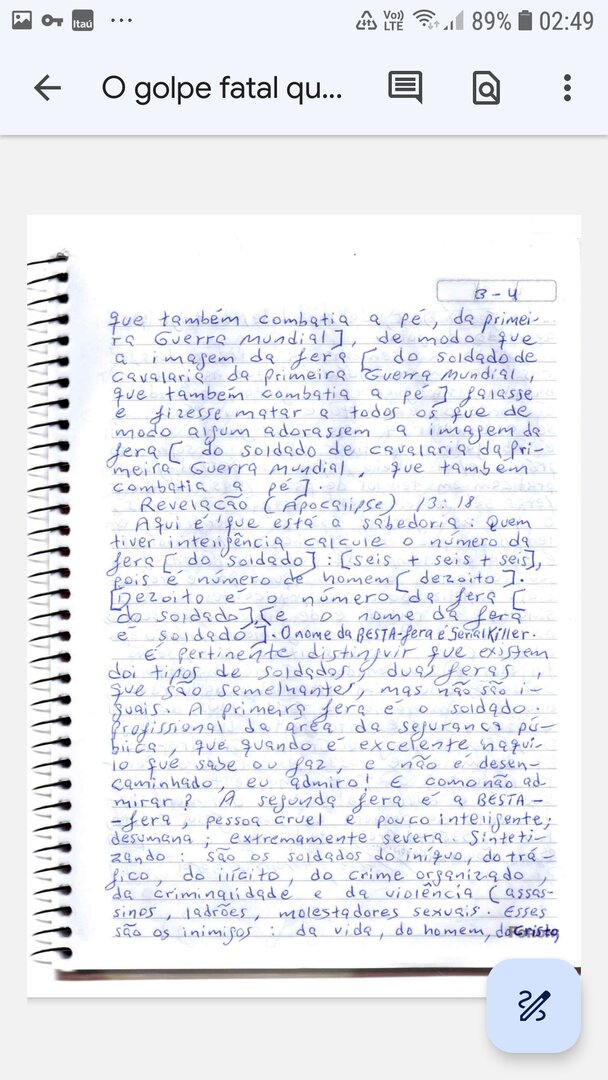 Itaú
Vo))
LTE
89%
02:49
O golpe fatal qu...
B-4
que também combatia a pé, da primei-
ra Guerra Mundial], de modo que
a imagem da fera [ do soldado de
cavalaria da Primeira Guerra Mundial,
que também combatia a pé ] falasse
e fizesse matar a todos os que de
modo algum adorassem a imagem da
fera [ do soldado de cavalaria da Pri-
meira Guerra Mundial, que também
combatia a pé ].
Revelação (Apocalipse) 13:18
Aqui é que está a sabedoria: Quem
tiver inteligência calcule o número da
fera [ do soldado] : [seis + seis + seis],
pois é número de homem [ dezoito ].
[Dezoito é o número da fera [
do soldado], [e o nome da fera
é soldado ]. O nome da BESTA-fera é Serial Killer.
É pertinente distinguir que existem
doi tipos de soldados, duas feras,
que são semelhantes, mas não são i-
guais. A primeira fera é o soldado.
Profissional da área da segurança pú-
blica, que quando é excelente naqui-
lo que sabe ou faz, e não é desen-
caminhado, eu admiro! E como não ad
mirar? A segunda fera é a BESTA-
-fera, pessoa cruel e pouco inteligente;
desumana; extremamente severa. Sinteti-
zando: são os soldados do iníquo, do trá-
fico, do ilícito, do crime organizado,
da criminalidade e da violência (assas-
sinos, ladrões, molestadores sexuais. Esses
são os inimigos: da vida, do homem, do Cristo,